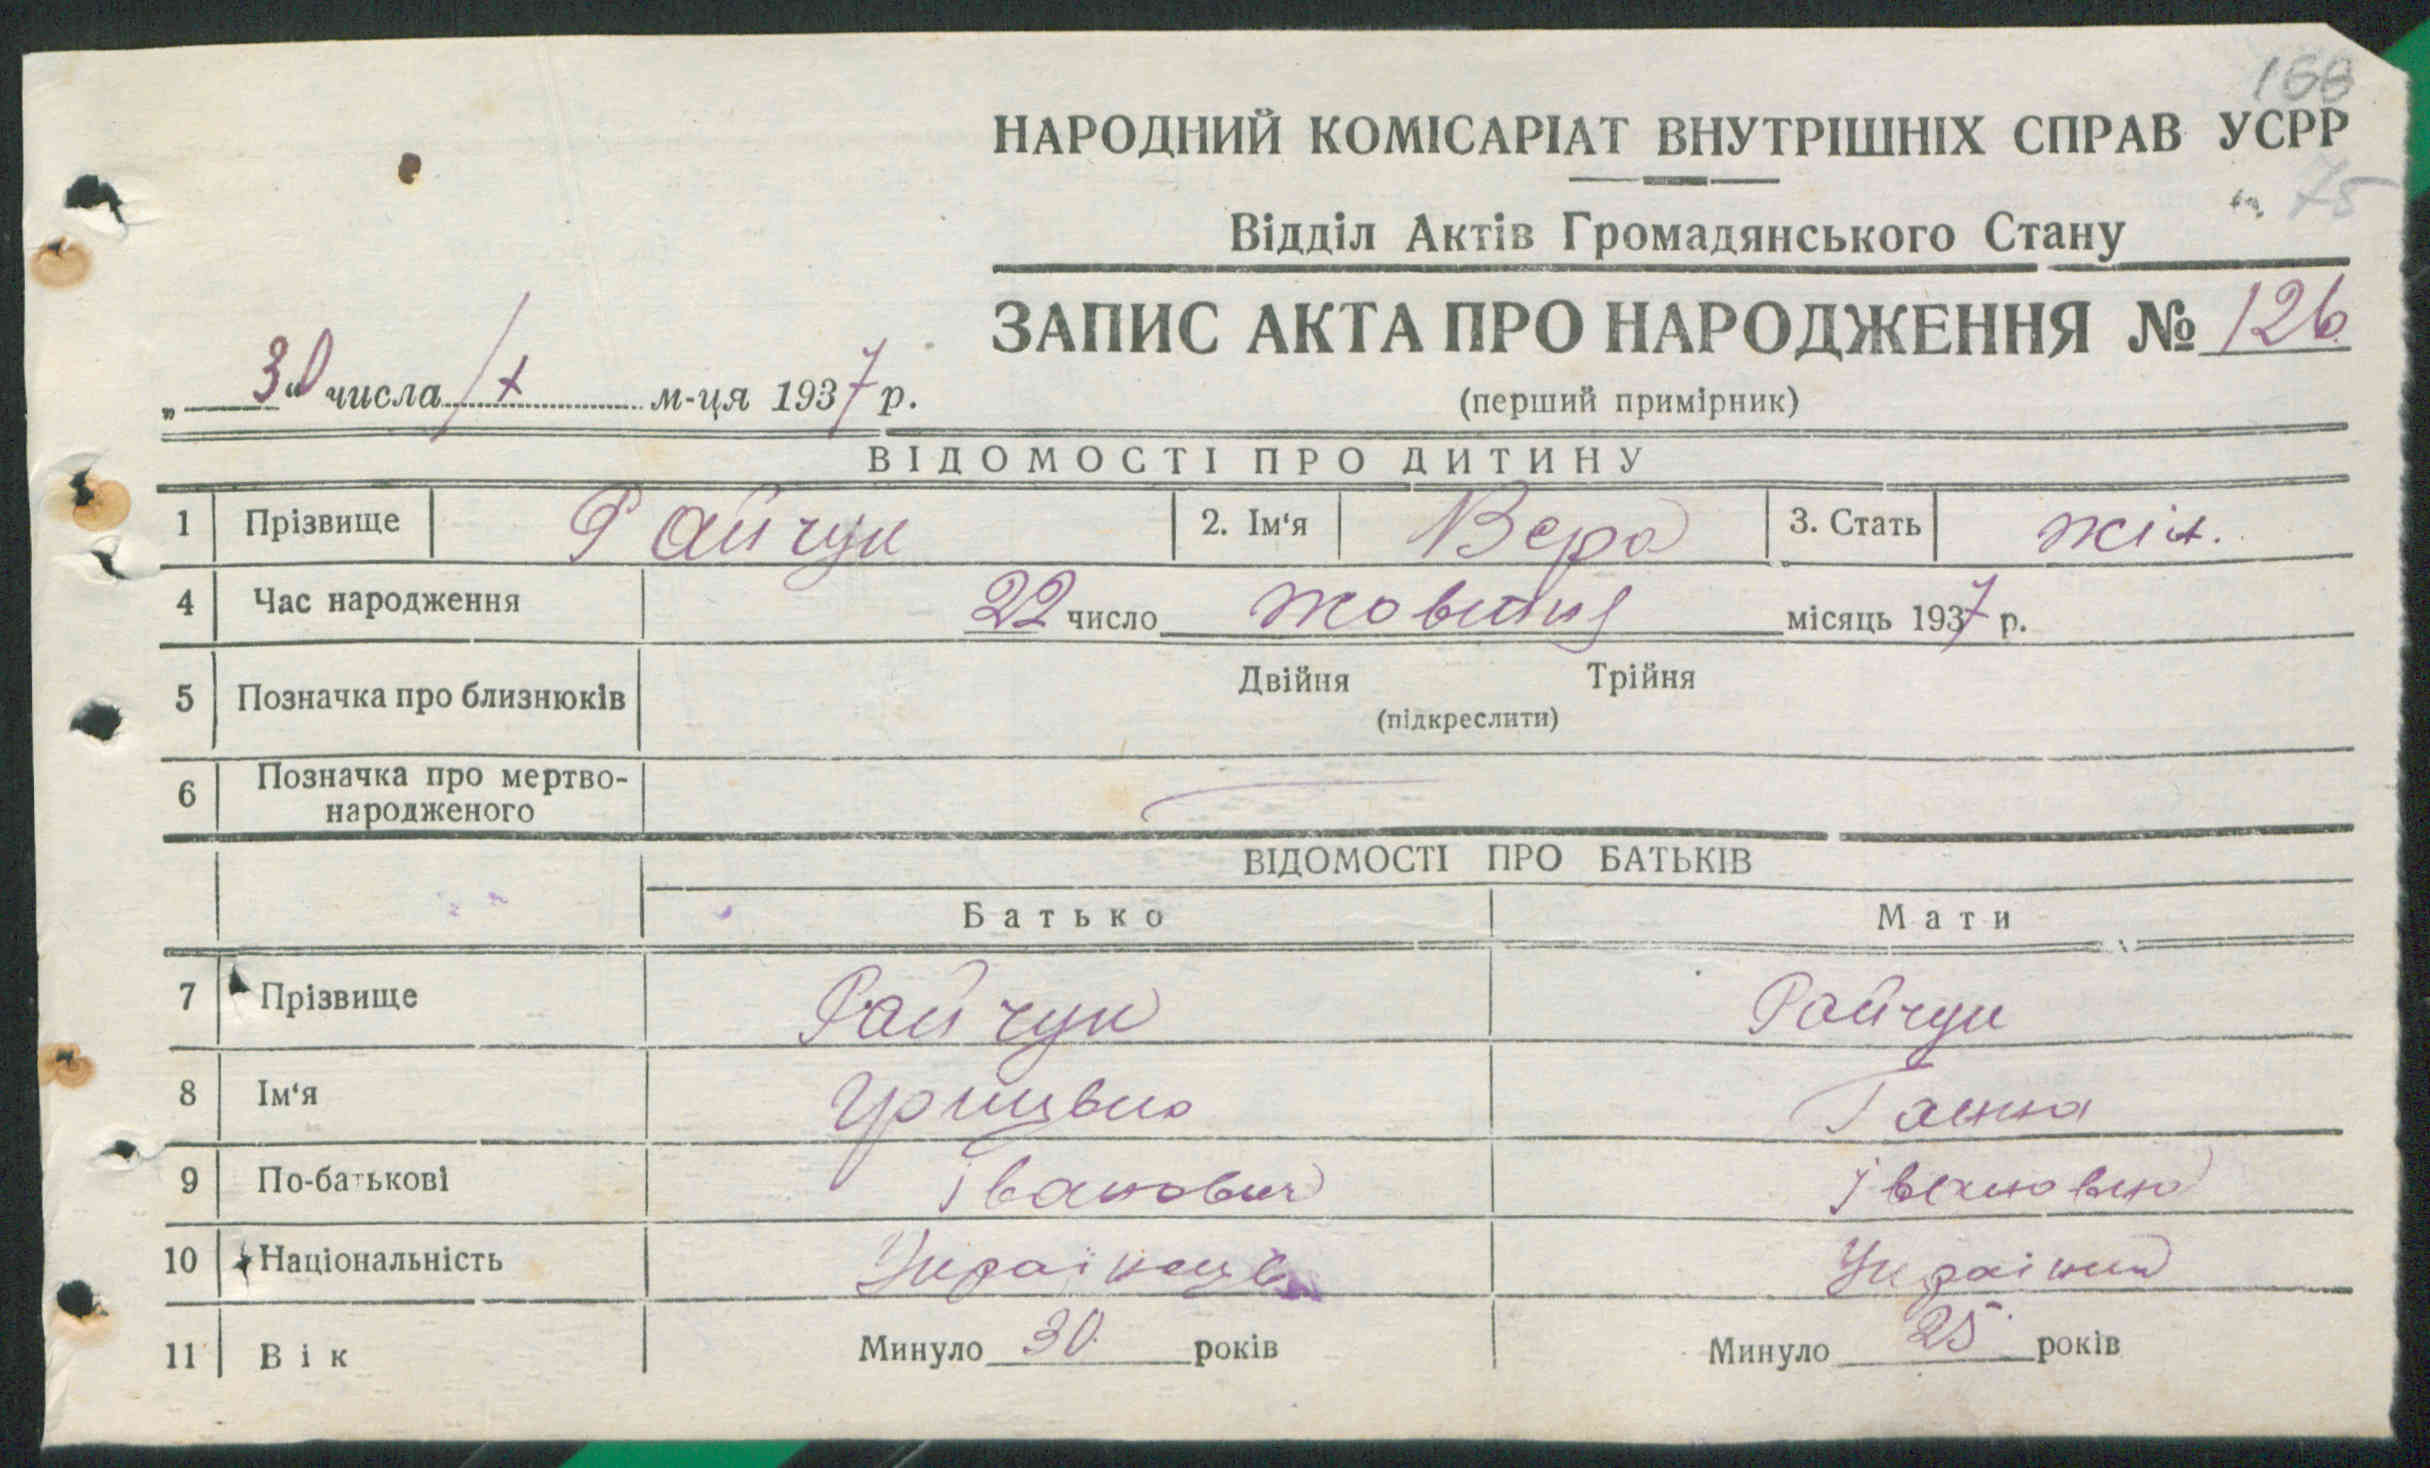 168
НАРОДНИЙ КОМІСАРІАТ ВНУТРІШНІХ СПРАВ УСРР
75
Відділ Актів Громадянського Стану
ЗАПИС АКТА ПРО НАРОДЖЕННЯ № 126
„ 30 “ числа / X м-ця 1937 р.
(перший примірник)
ВІДОМОСТІ ПРО ДИТИНУ
1 Прізвище Райчук 2. Ім‘я Вера 3. Стать жін.
4 Час народження 22 число жовтня місяць 1937 р.
5 Позначка про близнюків Двійня Трійня
(підкреслити)
6 Позначка про мертво-
народженого
ВІДОМОСТІ ПРО БАТЬКІВ
Батько Мати
7 Прізвище Райчук Райчук
8 Ім‘я Ганна
9 По-батькові Іванович Івановна
10 Національність Українець Українка
11 Вік Минуло 30 років Минуло 25 років